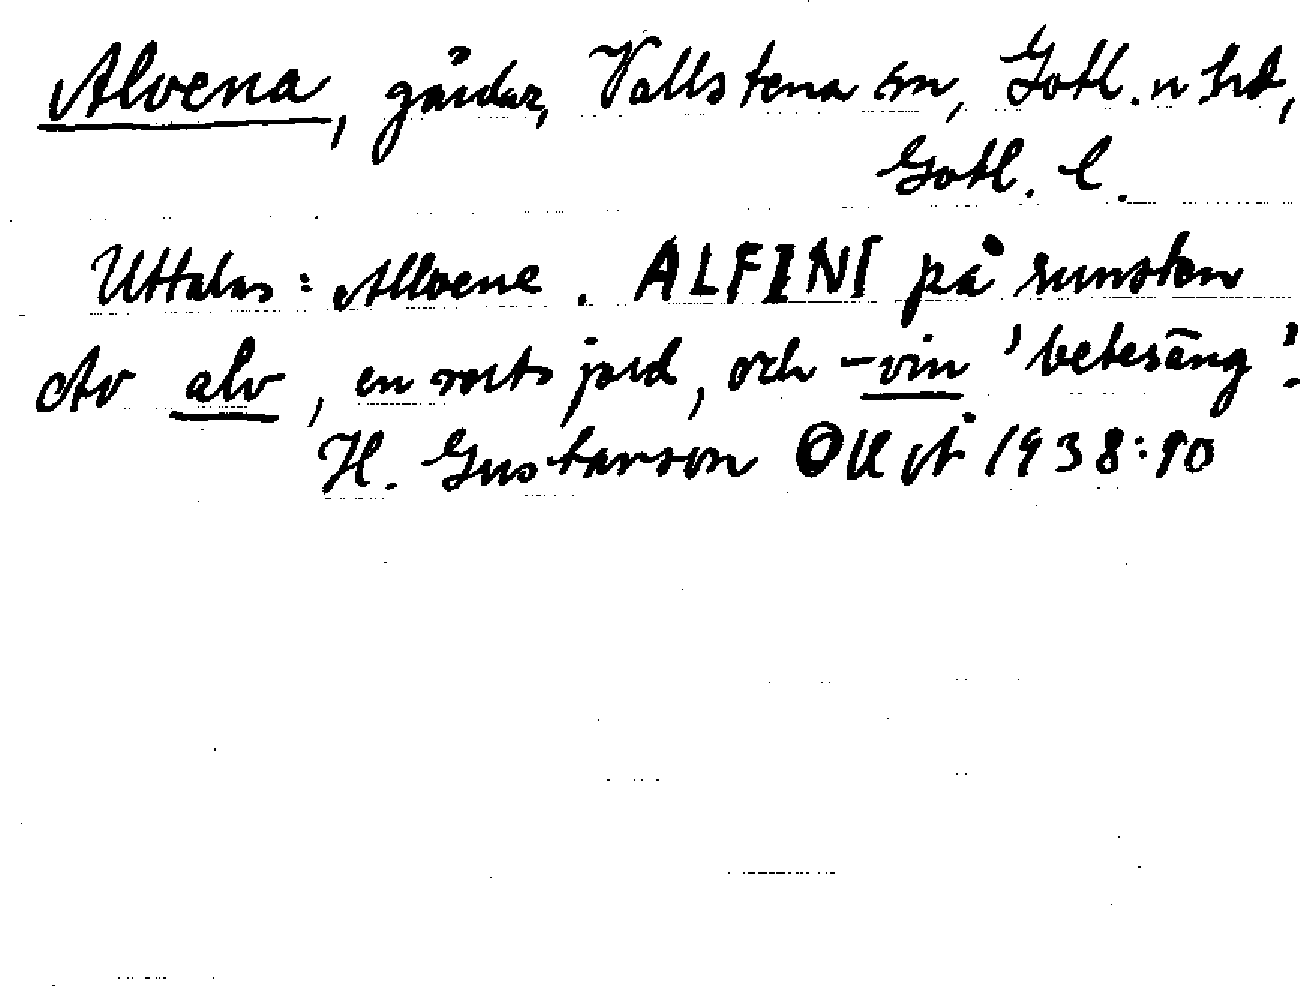 Alvena, gårdar, Vallstena sn, Gotl. n hd,
Gotl. l.
Uttalas: Allvene. ALFINI på runsten
Av alv, en sorts jord, och -vin 'betesäng'.
H. Gustavson OUÅ 1938:10